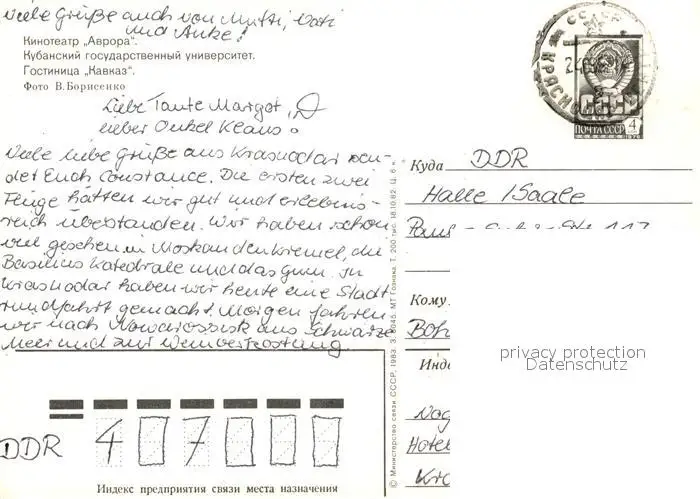 Viele Grüße auch von Mutti, Vati
und Anke!
Кинотеатр „Аврора".
Кубанский государственный университет.
Гостиница „Кавказ".
Фото В. Борисенко
Liebe Tante Margot,
lieber Onkel Klaus!
Viele liebe Grüße aus Krasnodar sen-
det Euch Constance. Die ersten zwei
Flüge hätten wir gut und erlebnis-
reich überstanden. Wir haben schon
viel gesehen in Moskau den Kreml, die
Basilius Katedrale und das Gum. In
Krasnodar haben wir heute eine Stadt
rundfahrt gemacht. Morgen fahren
wir nach Nowarossisk ans Schwarze
Meer und zur Weinverkostung
СССР
ПОЧТА СССР 4
Куда DDR
Halle /Saale
Кому
Инд
Hotel
privacy protection
Datenschutz
DDR 4 0 7 0 0 0
Индекс предприятия связи места назначения
© Министерство связи СССР, 1983. З. МТ Гознака. Т. 200 тыс. 18.10.82. Ц. 6 к.